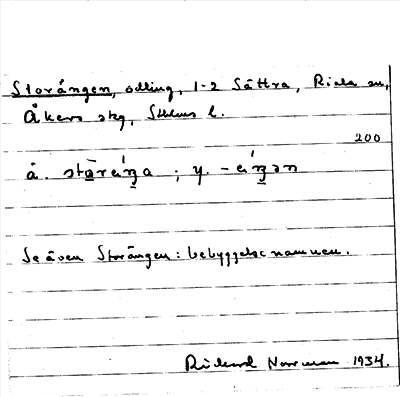 Storängen, odling, 1-2 Sättra, Riala sn,
Åkers skg, Sthlms l.
200
å. ; y.
Se även Storängen: bebyggelsenamnen.
Rickard Norrman 1934.